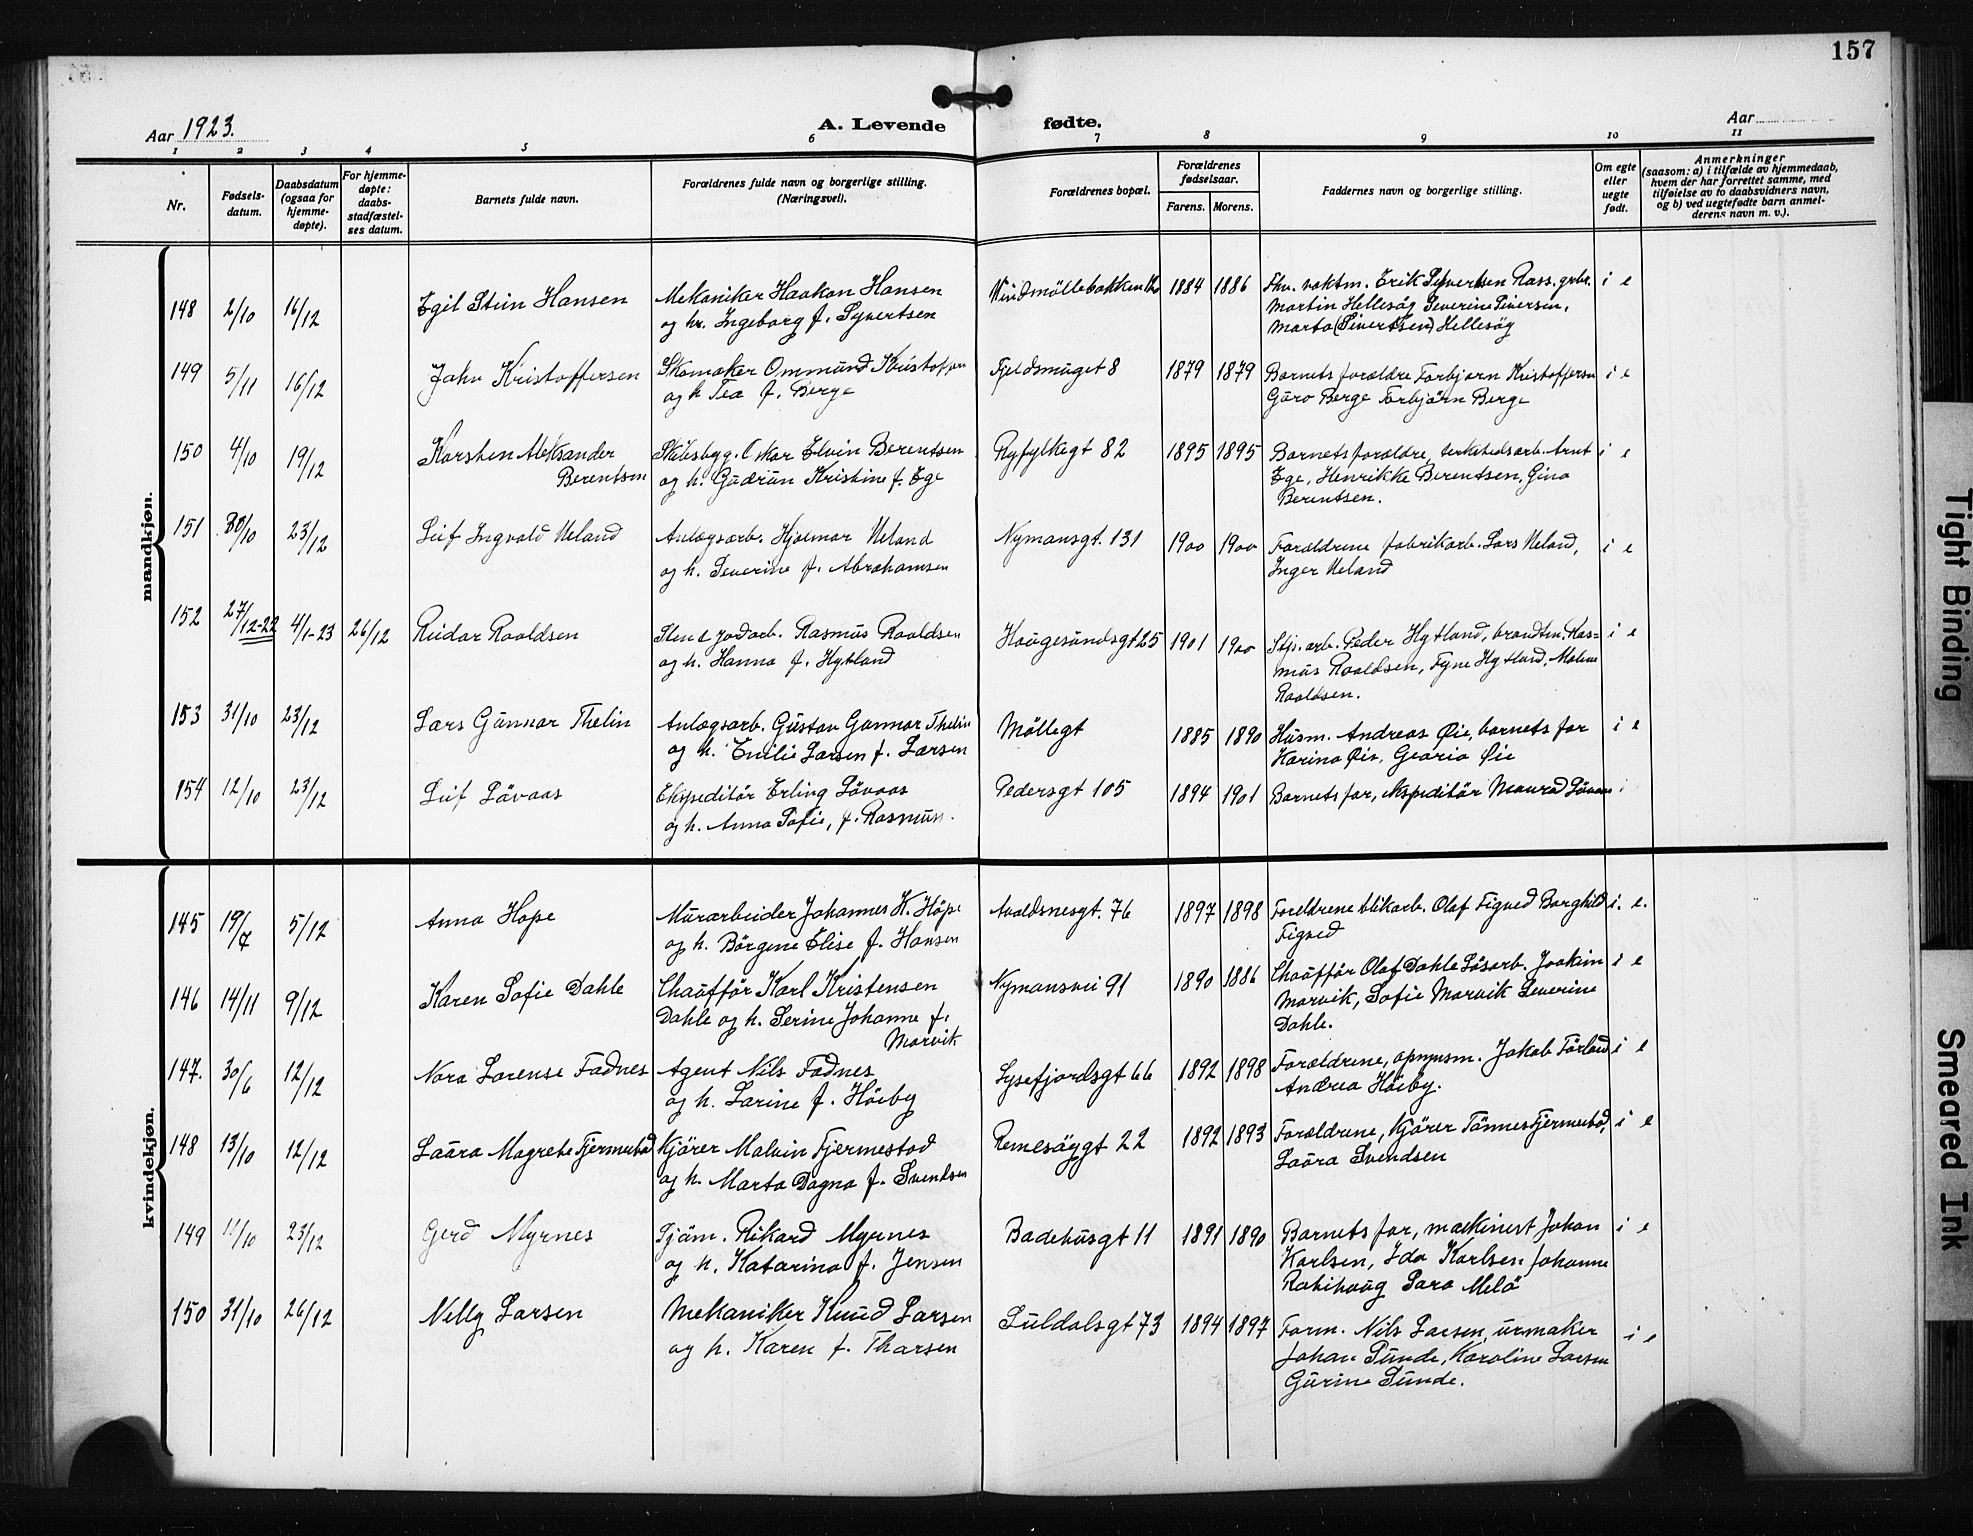 157
Aar 1923.
A. Levende fødte.
Aar
1 2 3 4 5 6 7 8 9 10 11
Nr.
Fødsels-
datum.
Daabsdatum
(ogsaa for
hjemme-
døpte).
For hjemme-
døpte:
daabs-
stadfæstel-
ses datum.
Barnets fulde navn.
Forældrenes fulde navn og borgerlige stilling.
(Næringsvei).
Forældrenes bopæl.
Forældrenes
fødselsaar.
Farens. Morens.
Faddernes navn og borgerlige stilling.
Om egte
eller
uegte
født.
Anmerkninger
(saasom: a) i tilfælde av hjemmedaab,
hvem der har forrettet samme, med
tilføielse av to daabsvidners navn,
og b) ved uegtefødte barn anmel-
derens navn m. v.).
mandkjøn.
148 2/10 16/12 Egil Stein Hansen
Mekaniker Haakon Hansen
og hr. Ingeborg f. Syvertsen
Vindmöllebakken 1884 1886
Fhv. vaktm. Erik Syvertsen Rass. grbr.
Martin Hellesøg Severine Sivertsen,
Marta (Sivertsen) Hellesøg
i e
149 5/11 16/12 John Kristoffersen
Skomaker Ommund Kristoffersen
og h Tea f. Berge
Fjeldsmuget 8 1879 1879
Barnets forældre Torbjørn Kristoffersen
Guro Berge Torbjörn Berge
i e
150 4/10 19/12 Karsten Aleksander
Berentsen
Skibsbyg. Oskar Elvin Berentsen
og h. Gudrun Kristine f. Ege
Ryfylkegt 82 1895 1895
Barnets forældre, verkstedsarb. Arnt
Ege, Henrikke Berentsen, Gina
Berentsen.
i e
151 30/10 23/12 Leif Ingvald Ueland
Anlægsarb. Hjalmar Ueland
og h. Severine f. Abrahamsen
Nymansgt. 131 1900 1900
Forældrene fabrikarb. Lars Ueland,
Inger Ueland
i e
152 27/12-22 4/1-23 26/12 Reidar Roaldsen
Rasmus Roaldsen
og h. Hanna f. Hytland
Haugesundsgt 25 1901 1900
Stip. arb. Peder Hytland, brandtm. Ras-
mus Roaldsen, Tyne Hytland, Malene
Roaldsen.
i e
153 31/10 23/12 Lars Gunnar Thelin
Anlægsarb. Gustav Gunnar Thelin
og h. Emilie Larsen f. Larsen
Möllegt 1885 1890
Husm. Andreas Øie, barnets far
Karina Øie, Georia Øie
i e
154 12/10 23/12 Leif Lövaas
Ekspeditör Erling Lövaas
og h. Anna Sofie, f. Rasmuss.
Pedersgt 105 1894 1901
Barnets far, ekspeditör Lövaas
i
kvindekjøn.
145 19/7 5/12 Anna Hope
Murarbeider Johannes K. Hope
og h. Börgene Elise f. Hansen
Avaldsnesgt. 76 1897 1898
Foreldrene blikarb. Olaf Tigved Borghild
Tigved
i. e.
146 14/11 9/12 Karen Sofie Dahle
Chaufför Karl Kristensen
Dahle og h. Serine Johanne f.
Marvik
Nymansvei 91 1890 1886
Chaufför Olaf Dahle Lösarb. Joakim
Marvik, Sofie Marvik Severine
Dahle.
i e
147. 30/6 12/12 Nora Lorense Fadnes
Agent Nils Fadnes
og h. Larine f. Höiby
Lysefjordsgt 66 1892 1898
Forældrene, opmysm. Jakob Förland
Andrea Höiby.
i e
148 13/10 12/12 Laura Magrete Tjermestad
Kjörer Malvin Tjermestad
og h. Marta Dagna f. Svendsen
Rennesöygt 22 1892 1893
Forældrene, Kjörer Tönnes Tjermestad,
Laura Svendsen
i e
149 11/10 23/12 Gerd Myrnes
Sjöm. Rikard Myrnes
og h. Katarina f. Jensen
Badehusgt 11 1891 1890
Barnets far, maskinist Johan
Karlsen, Ida Karlsen Johanne
Rabihaug Sara Melö
i e
150 31/10 26/12 Nelly Larsen
Mekaniker Knud Larsen
og h. Karen f. Tharsen
Suldalsgt 73 1894 1897
Form. Nils Larsen, urmaker
Johan Sunde, Karoline Larsen
Gurine Sunde.
i e
Tight Binding
Smeared Ink